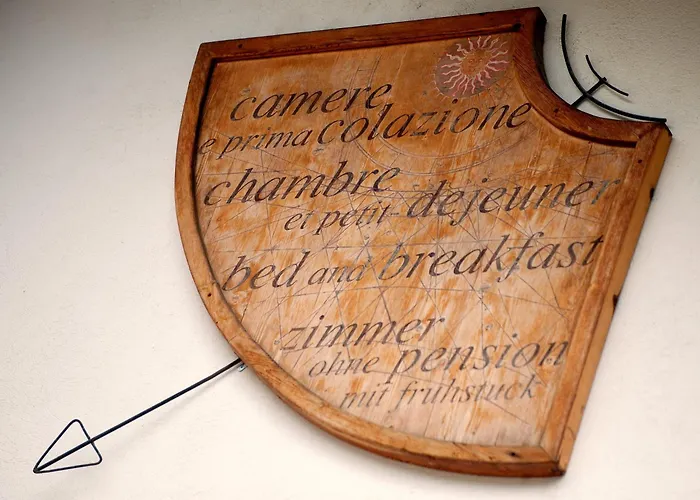 camere
e prima colazione
chambre
et petit-dejeuner
bed and breakfast
zimmer
ohne pension
mit fruhstuck